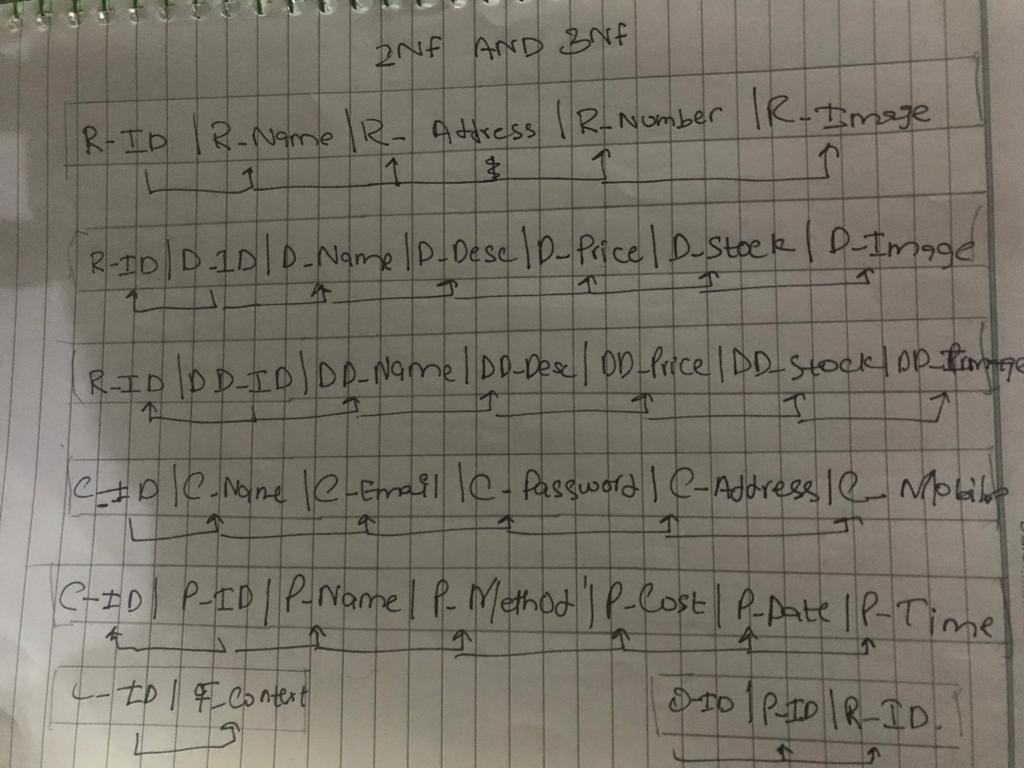 2NF AND 3NF
R-ID | R-Name | R- Address | R-Number | R-Image
R-ID | D-ID | D-Name | D-Desc | D-Price | D-Stock | D-Image
R-ID | DD-ID | DD-Name | DD-Desc | DD-Price | DD-Stock | DD-Image
C-ID | C-Name | C-Email | C-Password | C-Address | C-Mobile
C-ID | P-ID | P-Name | P-Method | P-Cost | P-Date | P-Time
C-ID | F-Context
O-ID | P-ID | R-ID